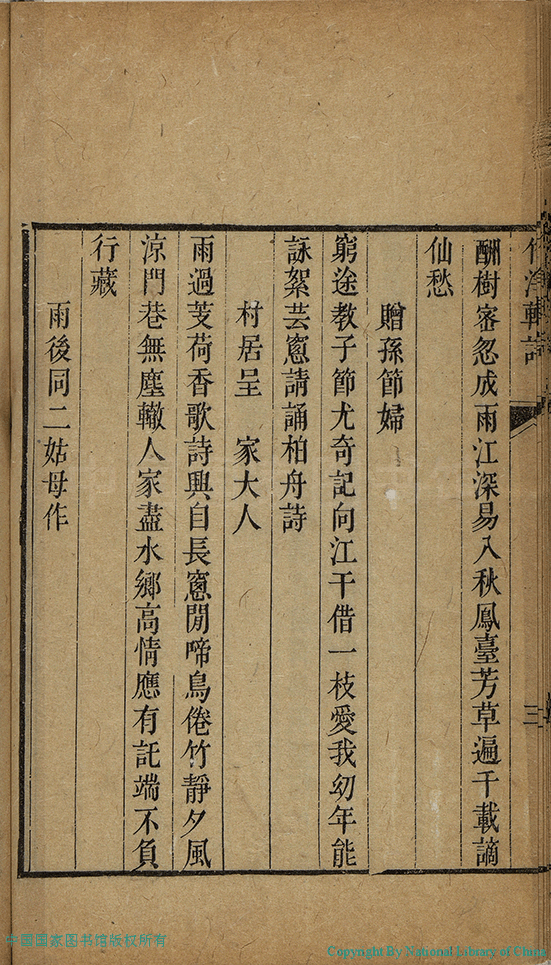 酬樹密忽成雨江深易入秋鳳臺芳草遍千載謫
仙愁
贈孫節婦
窮途教子節尤奇記向江干借一枝愛我幼年能
詠絮芸窻請誦柏舟詩
村居呈 家大人
雨過芰荷香歌詩興自長窻閒啼鳥倦竹靜夕風
涼門巷無塵轍人家盡水鄉高情應有託端不負
行藏
雨後同二姑母作
三
中国国家图书馆版权所有
Copyright By National Library of China